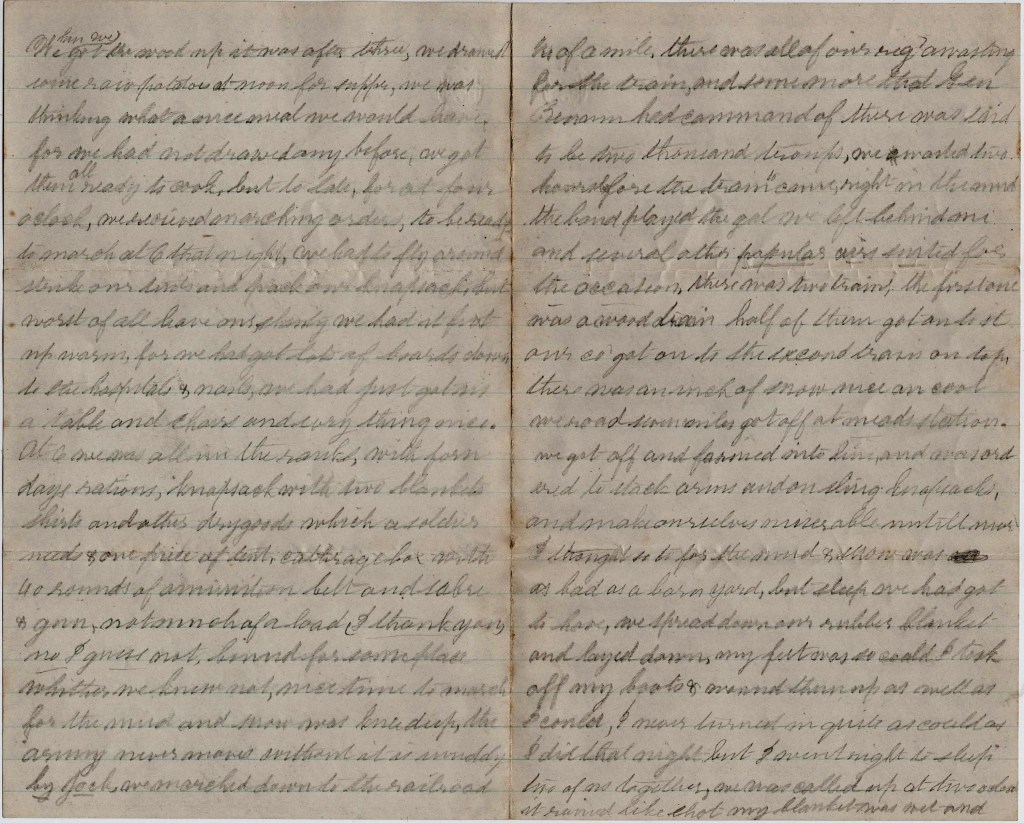 When we
got the wood up it was after three, we drawed
some raw potatoes at noon for supper, we was
thinking what a nice meal we would have,
for we had not drawed any before, we got
them all ready to cook, but to late, for at four
oclock, we recieved marching orders, to be ready
to march at 6 that night, we had to fly around
strike our tents and pack our knapsack, but
worst of all leave our shanty we had it fixt
up warm, for we had got lots of boards down
to the hospitals & nails, we had just got in
a table and chairs and evry thing nice.
At 6 we was all in the ranks, with four
days rations, knapsack with two blankets
shirts and other drygoods which a soldier
needs & one piece of tent, catherage box with
40 rounds of amunition belt and sabre
& gun, not much of a load (I thank you)
no I guess not, bound for some place
whither we knew not, nice time to march
for the mud and snow was knee deep, the
army never moves without it is muddy
by Jack, we marched down to the railroad
of a mile. there was all of our reg't awaiting
for the train, and some more that Gen
had command of there was said
to be two thousand troups, we awaited two
hours before the train came, right in the mud
the band played the gal we left behind me
and several other popular airs suited for
the occasion, there was two train, the first one
was a wood train half of them got on to it
our co got on to the second train on top,
there was an inch of snow nice an cool
we road seven miles got off at meads station.
we got off and formed into line, and was ord
ered to stack arms and on sling knapsacks,
and make ourselves miserable untill morn
I thought so to for the mud & snow was
as bad as a barn yard, but sleep we had got
to have, we spread down our rubber blanket
and layed down, my feet was so could I took
off my boots & wound them up as well as
I could, I never turned in quite as could as
I did that night but I went right to sleep
two of us together, we was called up at two oclock
it rained like shot my blanket was wet and